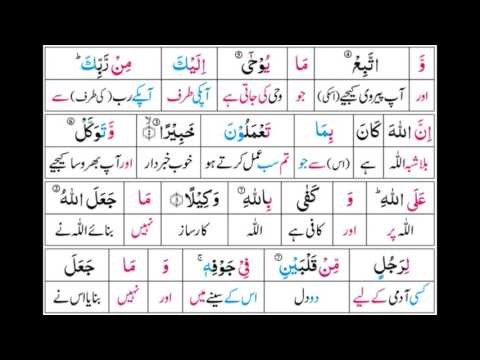 وَّ اتَّبِعْ ④ مَا يُوْحٰٓى ⑤ اِلَيْكَ مِنْ رَّبِّكَ ؕ
اور آپ پیروی کیجیے (اسکی) جو وحی کی جاتی ہے آپکی طرف آپکے رب (کی طرف) سے
اِنَّ اللّٰهَ كَانَ بِمَا تَعْمَلُوْنَ خَبِيْرًا ۙ وَّتَوَكَّلْ ⑥
بلاشبہ اللہ ہے (اس) سے جو تم سب عمل کرتے ہو خوب خبردار اور آپ بھروسا کیجیے
عَلَى اللّٰهِ ؕ وَ كَفٰى بِاللّٰهِ ⑦ وَكِيْلًا مَا جَعَلَ اللّٰهُ
اللہ پر اور کافی ہے اللہ کارساز نہیں بنائے اللہ نے
لِرَجُلٍ مِّنْ قَلْبَيْنِ ⑦ فِيْ جَوْفِهٖ ۚ وَ مَا جَعَلَ
کسی آدمی کے لیے دو دل اس کے سینے میں اور نہیں بنایا اس نے